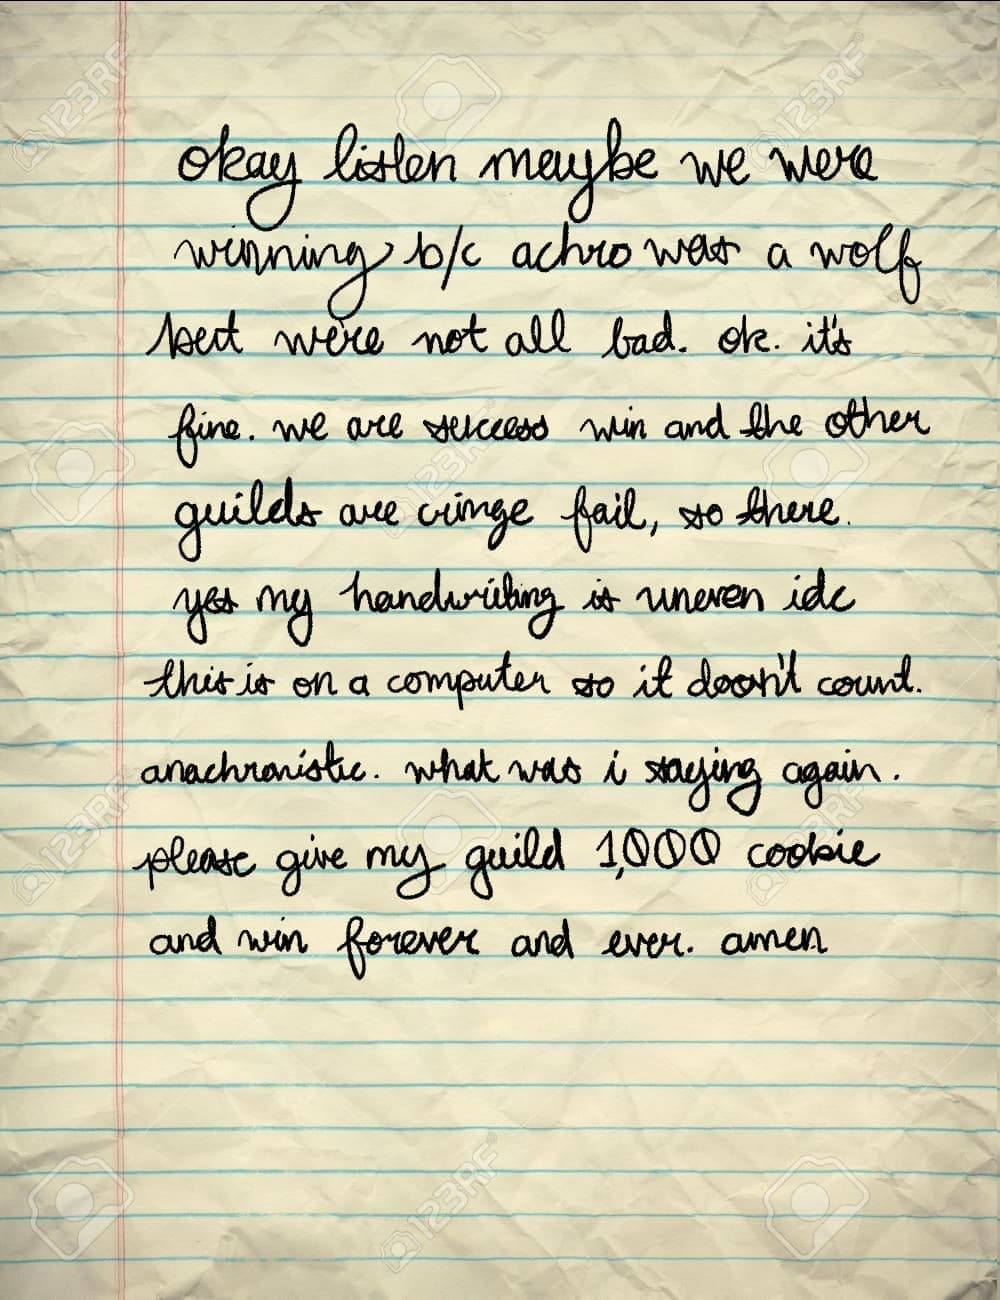 okay listen maybe we were
winning b/c achro was a wolf
but we're not all bad. ok. it's
fine. we are success win and the other
guilds are cringe fail, so there.
yes my handwriting is uneven idc
this is on a computer so it doesn't count.
anachronistic. what was i saying again.
please give my guild 1,000 cookie
and win forever and ever. amen
123RF